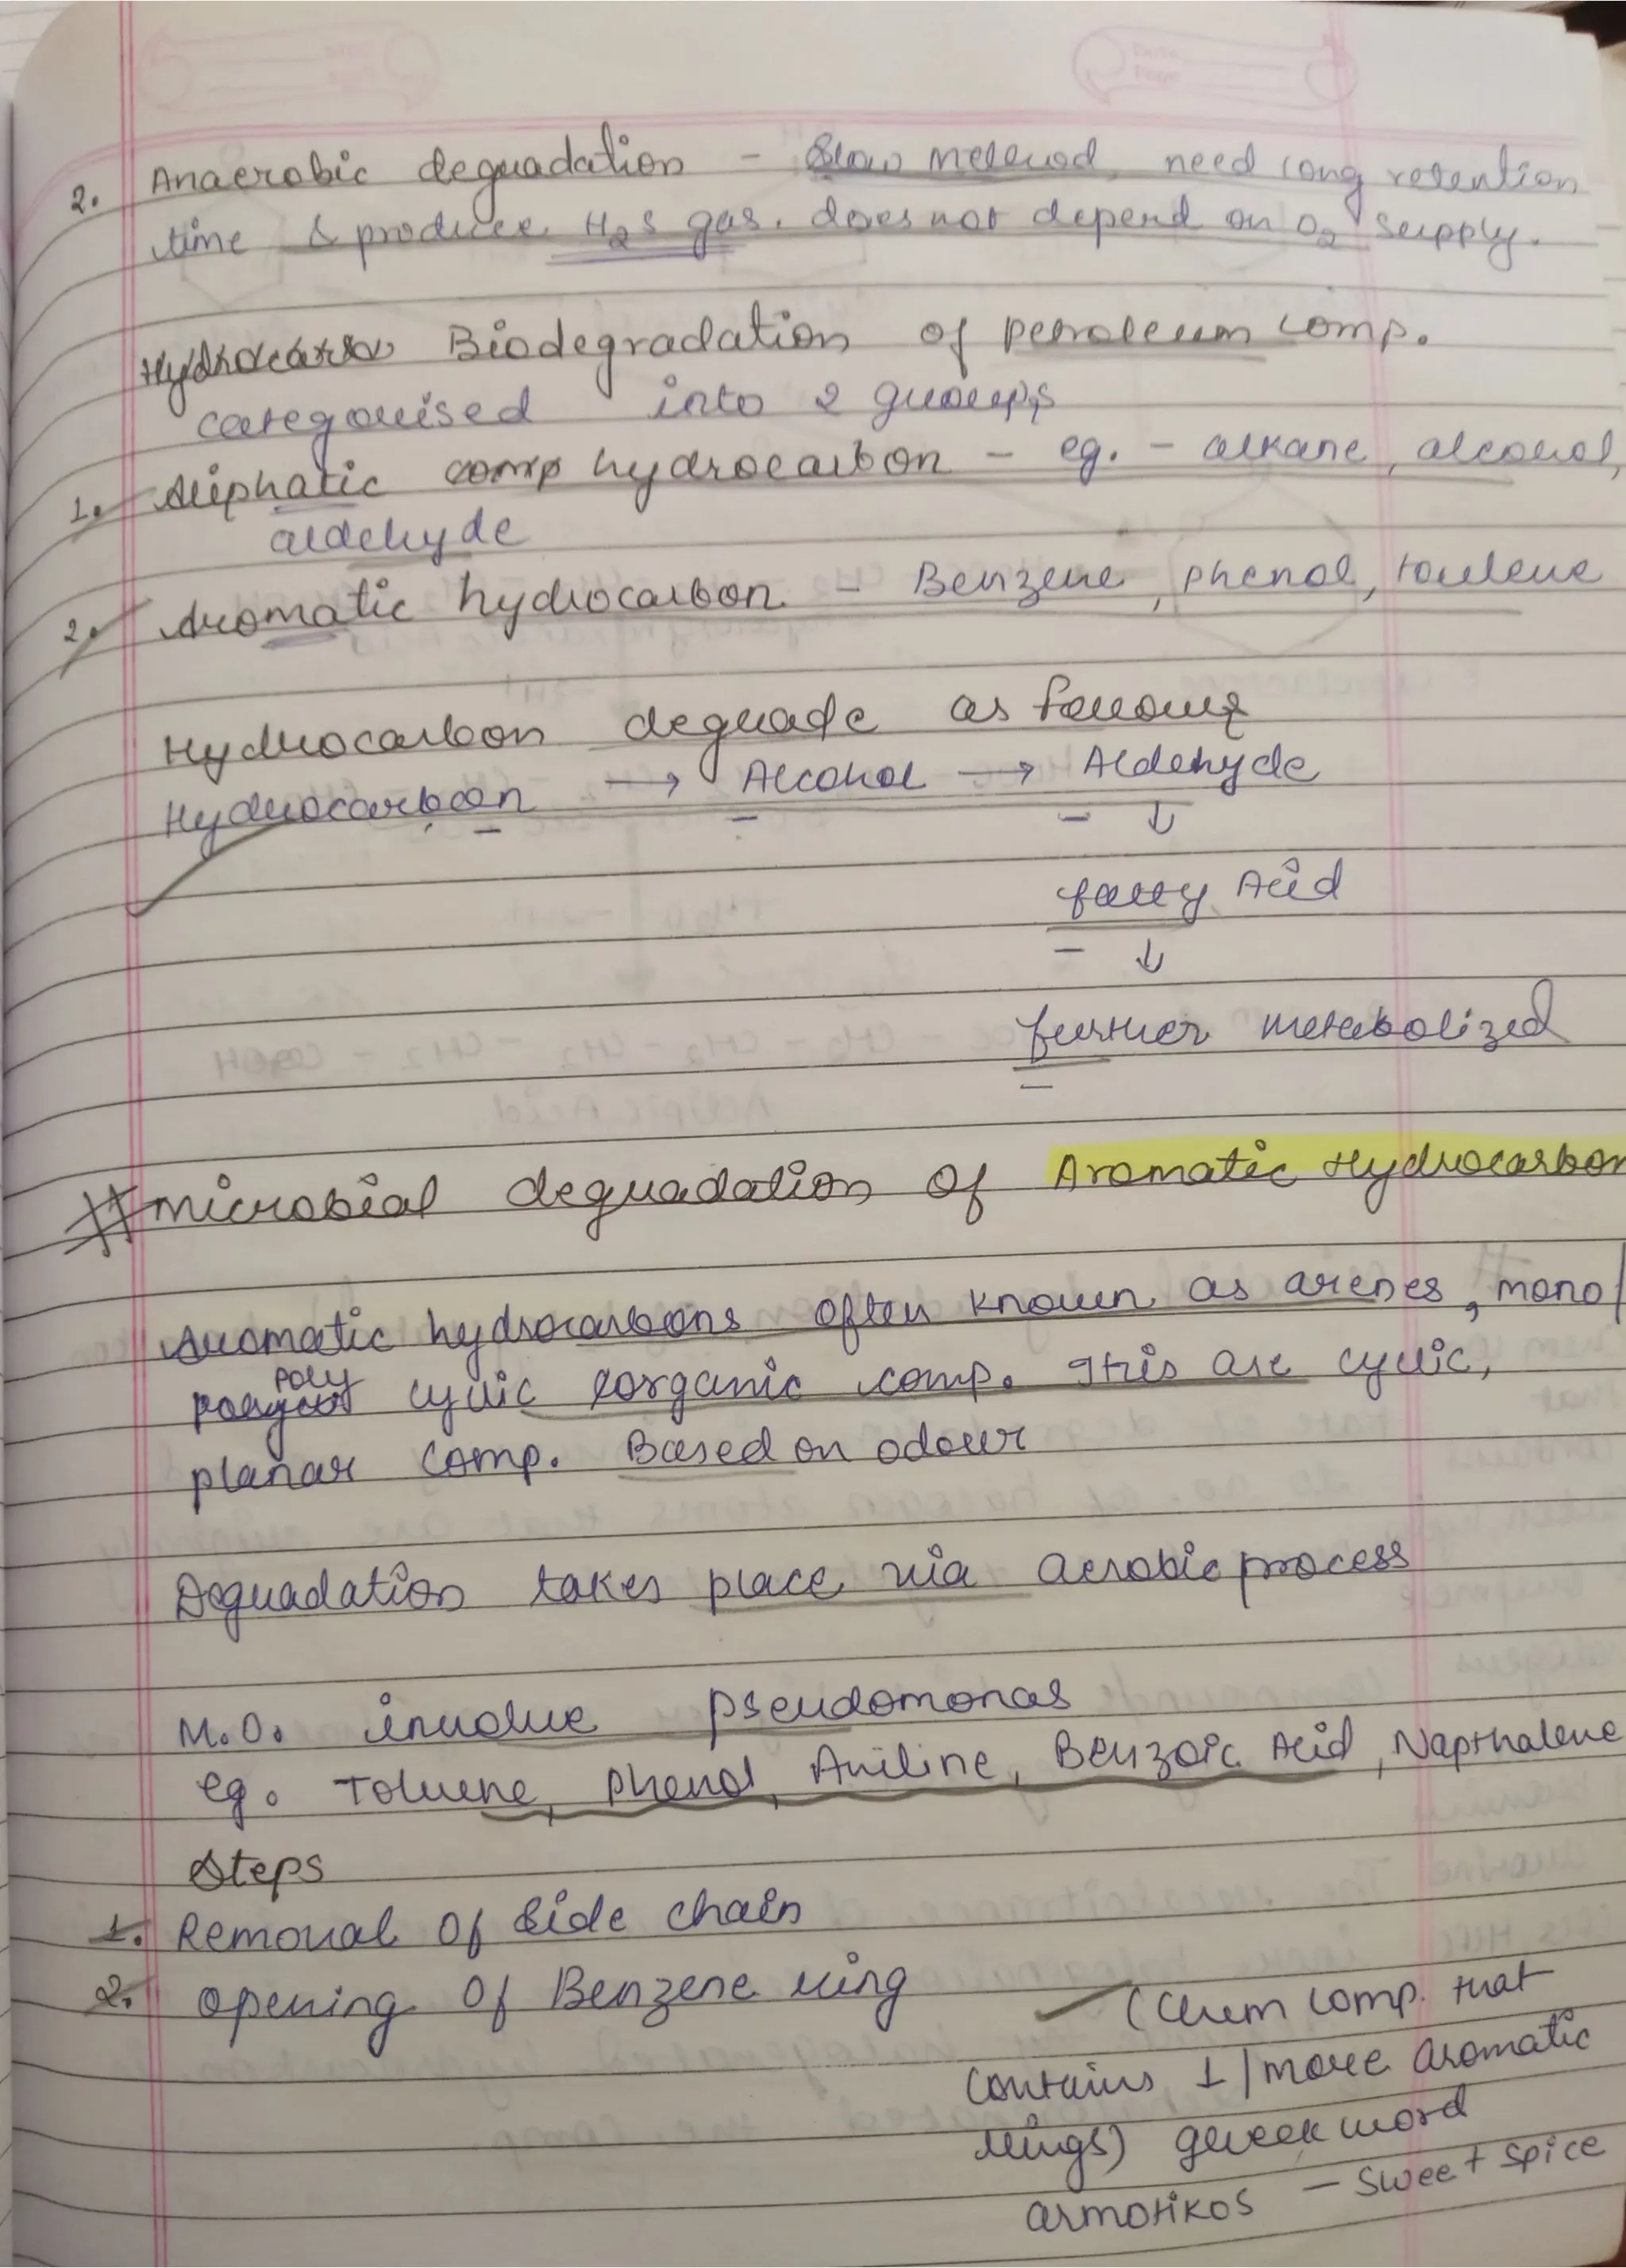 2. Anaerobic degradation - Slow method, need long retention
time & produce H₂S gas. does not depend on O₂ supply.
Biodegradation of petroleum comp.
categorised into 2 groups
1. Aliphatic comp hydrocarbon - eg. - alkane, alcohol,
aldehyde
2. Aromatic hydrocarbon - Benzene, phenol, toulene
Hydrocarbon degrade as follows
Hydrocarbon → Alcohol → Aldehyde
↓
fatty Acid
↓
further metabolized
# microbial degradation of Aromatic Hydrocarbon
Aromatic hydrocarbons often known as arenes, mono/
poly cyclic organic comp. This are cyclic,
planar comp. Based on odour
Degradation takes place via aerobic process
M.O. involve pseudomonas
eg. Toluene, phenol, Aniline, Benzoic Acid, Napthalene
Steps
1. Removal of side chain
2. opening of Benzene ring
(Chem comp. that
contains 1/more aromatic
rings) greek word
armotikos - sweet spice